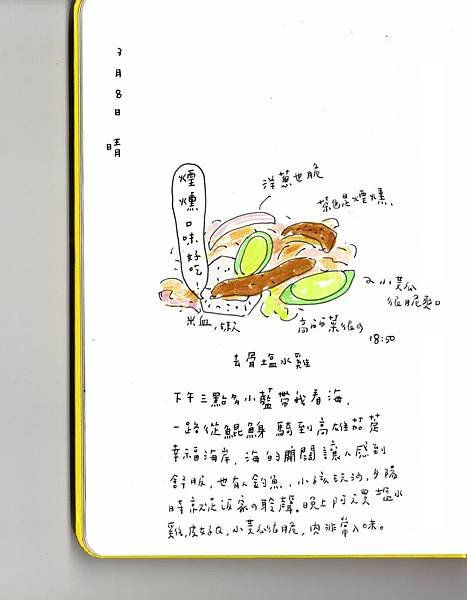 3月8日 晴
煙燻口味好吃!
洋蔥也脆
茶鵝是煙燻、
小黃瓜
很脆爽口
米血,軟
高麗菜很Q
18:50
去骨塩水雞
下午三點多小藍帶我看海,
一路從鯤鯓騎到高雄茄萣
幸福海岸,海的開闊讓人感到
舒服,也有人釣魚,小孩玩沙,夕陽
時就是返家の聆聲。晚上阿元買塩水
雞,皮好Q,小黃瓜很脆,肉非常入味。